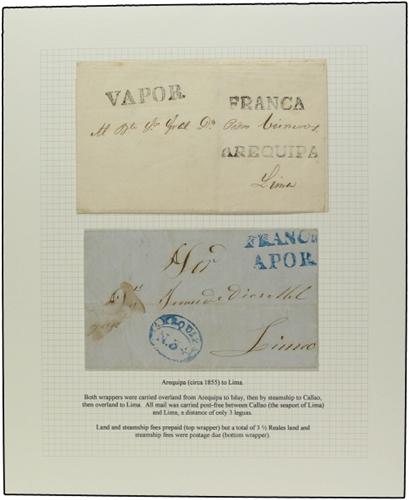 VAPOR.
FRANCA
AREQUIPA
Lima
FRANCA
APOR.
AREQUIPA
Lima
Arequipa (circa 1855) to Lima.
Both wrappers were carried overland from Arequipa to Islay, then by steamship to Callao,
then overland to Lima. All mail was carried post-free between Callao (the seaport of Lima)
and Lima, a distance of only 3 leguas.
Land and steamship fees prepaid (top wrapper) but a total of 3 ½ Reales land and
steamship fees were postage due (bottom wrapper).